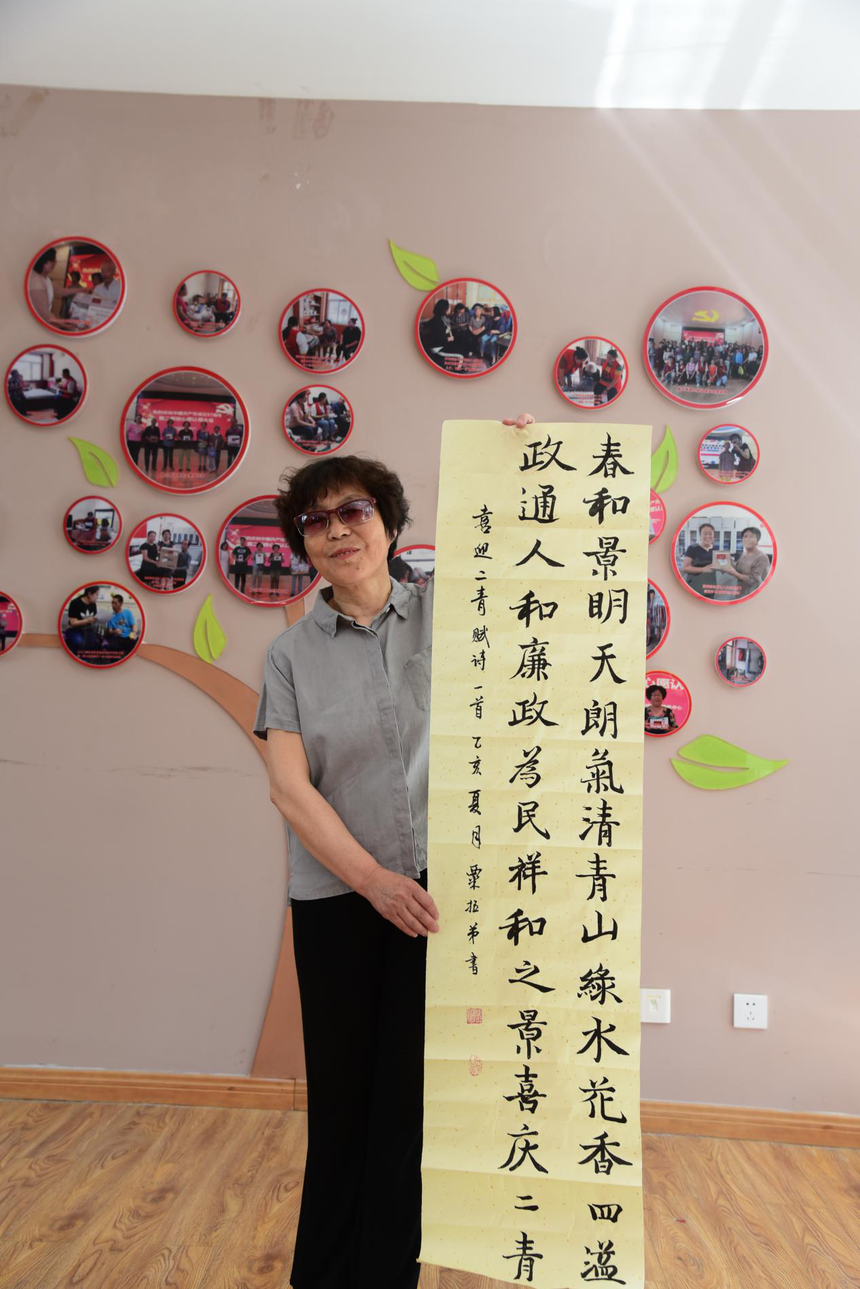 春和景明天朗氣清青山綠水花香四溢
政通人和廉政為民祥和之景喜庆二青
喜迎二青赋诗一首乙亥夏月粟拉弟書